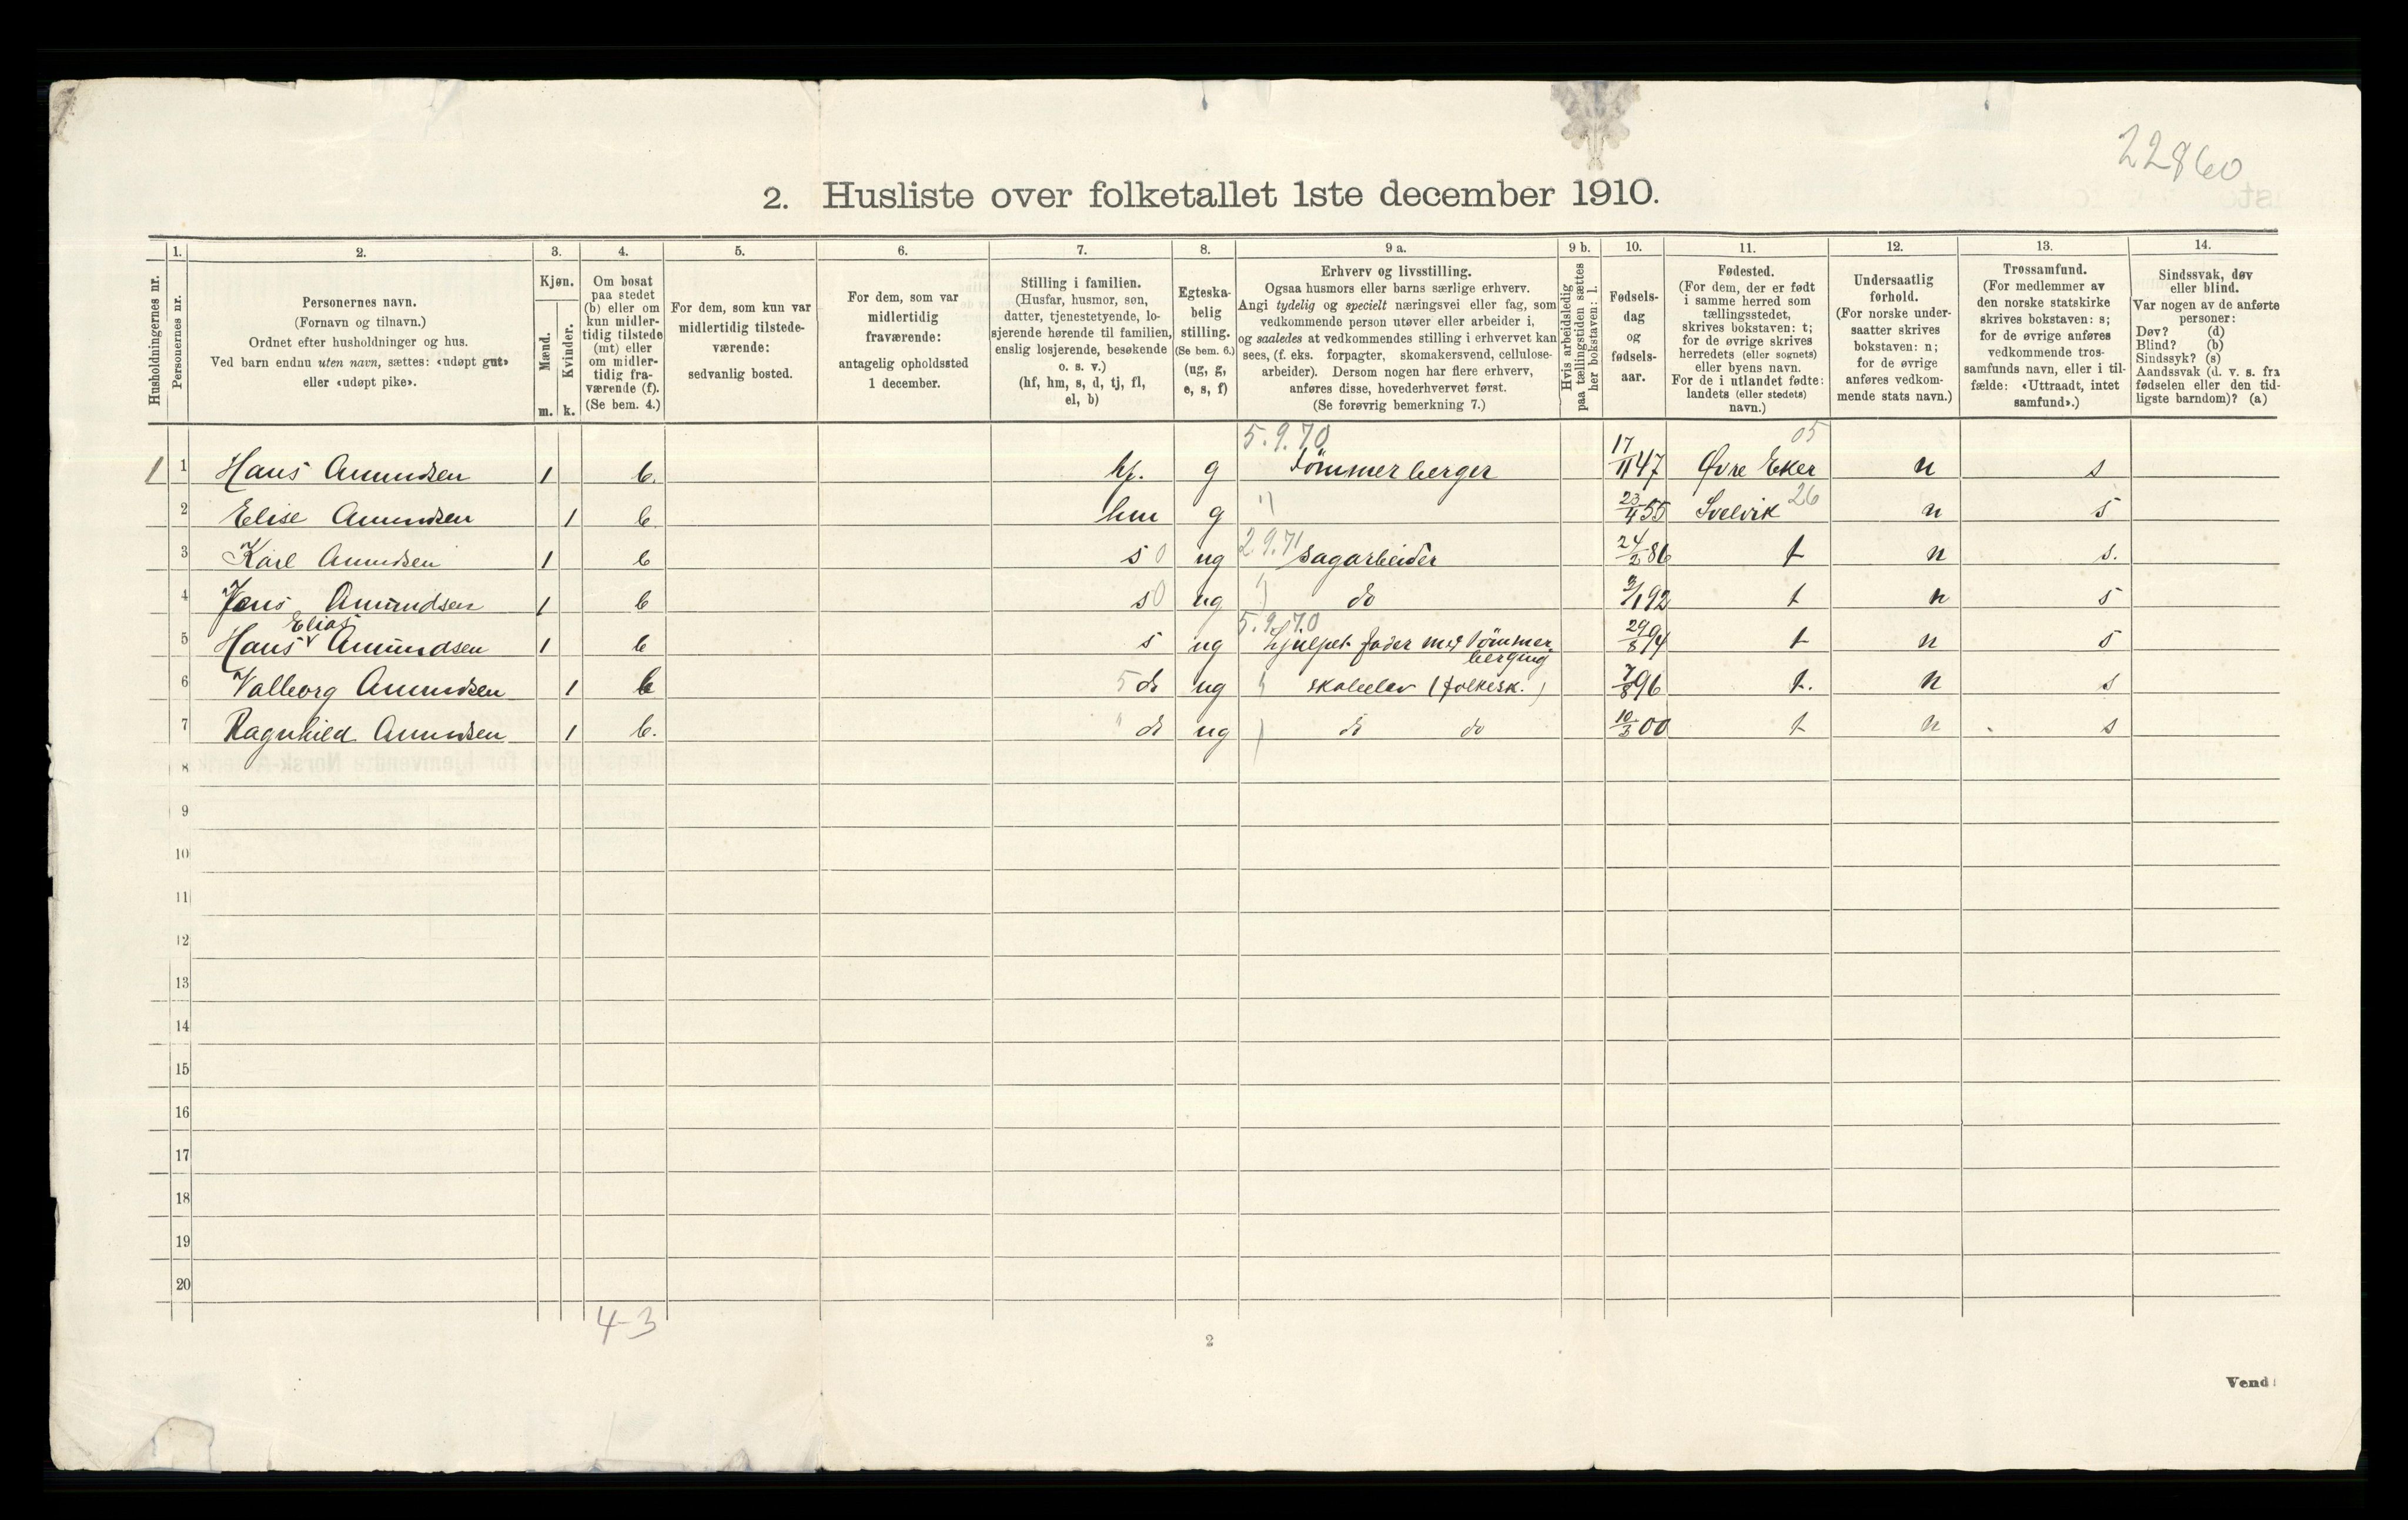 22860
2. Husliste over folketallet 1ste december 1910.
Husholdningernes nr.
1.
Personernes nr.
2.
Personernes navn.
(Fornavn og tilnavn.)
Ordnet efter husholdninger og hus.
Ved barn endnu uten navn, sættes: «udøpt gut»
eller «udøpt pike».
3.
Kjøn.
Mænd.
Kvinder.
m. k.
4.
Om bosat
paa stedet
(b) eller om
kun midler-
tidig tilstede
(mt) eller
om midler-
tidig fra-
værende (f).
(Se bem. 4.)
5.
For dem, som kun var
midlertidig tilstede-
værende:
sedvanlig bosted.
6.
For dem, som var
midlertidig
fraværende:
antagelig opholdssted
1 december.
7.
Stilling i familien.
(Husfar, husmor, søn,
datter, tjenestetyende, lo-
sjerende hørende til familien,
enslig losjerende, besøkende
o. s. v.)
(hf, hm, s, d, tj, fl,
el, b)
8.
Egteska-
belig
stilling.
(Se bem. 6.)
(ug, g,
e, s, f)
9 a.
Erhverv og livsstilling.
Ogsaa husmors eller barns særlige erhverv.
Angi tydelig og specielt næringsvei eller fag, som
vedkommende person utøver eller arbeider i,
og saaledes at vedkommendes stilling i erhvervet kan
sees, (f. eks. forpagter, skomakersvend, cellulose-
arbeider). Dersom nogen har flere erhverv,
anføres disse, hovederhvervet først.
(Se forøvrig bemerkning 7.)
9 b.
Hvis arbeidsledig
paa tællingstiden sættes
her bokstaven: l.
10.
Fødsels-
dag
og
fødsels-
aar.
11.
Fødested.
(For dem, der er født
i samme herred som
tællingsstedet,
skrives bokstaven: t;
for de øvrige skrives
herredets (eller sognets)
eller byens navn.
For de i utlandet fødte:
landets (eller stedets)
navn.)
12.
Undersaatlig
forhold.
(For norske under-
saatter skrives
bokstaven: n;
for de øvrige
anføres vedkom-
mende stats navn.)
13.
Trossamfund.
(For medlemmer av
den norske statskirke
skrives bokstaven: s;
for de øvrige anføres
vedkommende tros-
samfunds navn, eller i til-
fælde: «Uttraadt, intet
samfund».)
14.
Sindssvak, døv
eller blind.
Var nogen av de anførte
personer:
Døv? (d)
Blind? (b)
Sindssyk? (s)
Aandssvak (d. v. s. fra
fødselen eller den tid-
ligste barndom)? (a)
5.9.70 05
1 1 Hans Amundsen 1 b. hf. g Tömmerberger 17/11 47 Øvre Eker n s
2 Elise Amundsen 1 b hm g " 23/4 55 Svelvik 26 n s
3 Karl Amundsen 1 b s 0 ug 2.9.71 sagarbeider 24/2 86 t n s.
4 Jens Amundsen 1 b s 0 ug do 3/1 92 t n s
Elias 5.9.70
5 Hans v Amundsen 1 b s ug Hjælper fader med Tömmer-
berging 29/8 94 t n s
6 Valborg Amundsen 1 b 5 d ug skoleelev (folkesk.) 7/8 96 t. n s
7 Ragnhild Amundsen 1 b. " d ug do do 10/3 00 t n s
8
9
10
11
12
13
14
15
16
17
18
19
20
4-3
2
Vend!